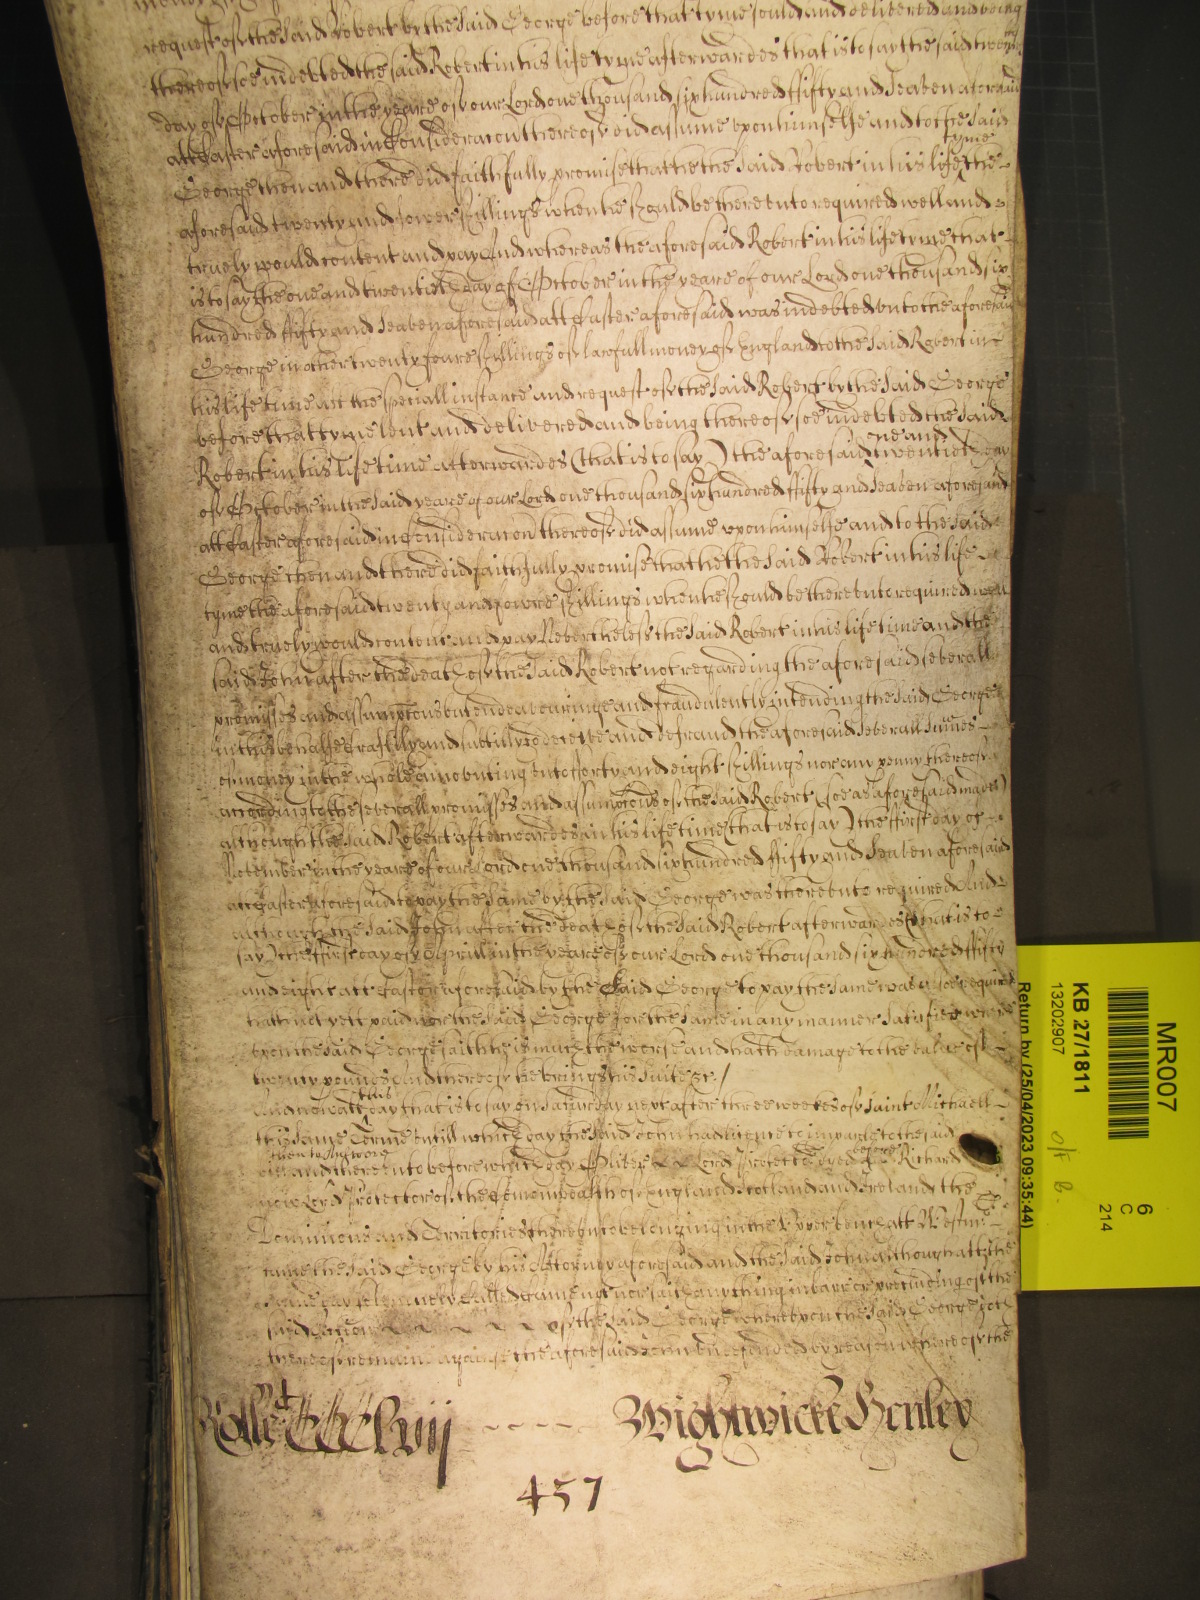 request of the said Robert by the said George before that tyme sould and delivered and being
thereof soe indebted the said Robert in his life tyme afterwardes that is to say the said
day of October in the yeare of our Lord one thousand six hundred fifty and seaven aforesaid
att Easter aforesaid in Consideracon thereof did assume upon himselfe and to the said
George then and there did faithfully promise that he the said Robert in his life tyme the
aforesaid twenty and fower shillings when he should be thereunto required well and
truely would content and pay And whereas the aforesaid Robert in his life tyme that
is to say the one and twentieth day of October in the yeare of our Lord one thousand six
hundred fifty and seaven aforesaid att Easter aforesaid was indebted unto the aforesaid
George in other twenty foure shillings of lawfull money of England to the said Robert in
his life time att the speciall instance and request of the said Robert by the said George
before that tyme lent and delivered and being thereof soe indebted the said
Robert in his life time afterwardes (that is to say) the aforesaid one and twentieth day
of October in the said yeare of our Lord one thousand six hundred fifty and seaven aforesaid
att Easter aforesaid in Consideracon thereof did assume upon himselfe and to the said
George then and there did faithfully promise that he the said Robert in his life
tyme the aforesaid twenty and fowre shillings when he should be thereunto required well
and truely would content and pay Neverthelesse the said Robert in his life time and the
said John after the death of the said Robert not regarding the aforesaid severall
promisses and assumptons but endeavouringe and fraudulently intending the said George
in this behalfe craftily and subtilly to deceive and defraud the aforesaid severall summes
of money in the whole amounting unto forty and eight shillings nor any penny thereof
according to the severall promisses and assumptons of the said Robert (soe as aforesaid made)
although the said Robert afterwardes in his life time (that is to say) the first day of
November in the yeare of our Lord one thousand six hundred fifty and seaven aforesaid
att Easter aforesaid to pay the same by the said George was thereunto required And
although the said John after the death of the said Robert afterwardes (that is to
say) the first day of Aprill in the yeare of our Lord one thousand six hundred fifty
and eight att Easter aforesaid by the said George to pay the same was alsoe required
hath not yett paid nor the said George for the same in any manner satisfied where
upon the said George saith he is much the worse and hath damage to the value of
twenty pounds And thereof he brings his suite &c. /
And now att this day that is to say on Saturday next after three weekes of Saint Michaell
this same Terme untill which day the said John had licence to imparle to the said
and then to Answere and thereunto before which day Oliver Lord Protector dyed before Richard
now Lord Protector of the Comonwealth of England Scotland and Ireland the
Dominions and Territories thereunto belonging in the Upper bench att Westm
came the said George by his Attorney aforesaid and the said John although att the
same day solemnely called came not nor saith any thing in barr or precluding of the
said action of the said George whereupon the said George doth
thereof remaine against the aforesaid John undefended by reason whereof the
Rolle CCCClvij ---- Wightwicke Henley
457
MR007
6
C
214
KB 27/1811
13202907
Return by (25/04/2023 09:35:44)